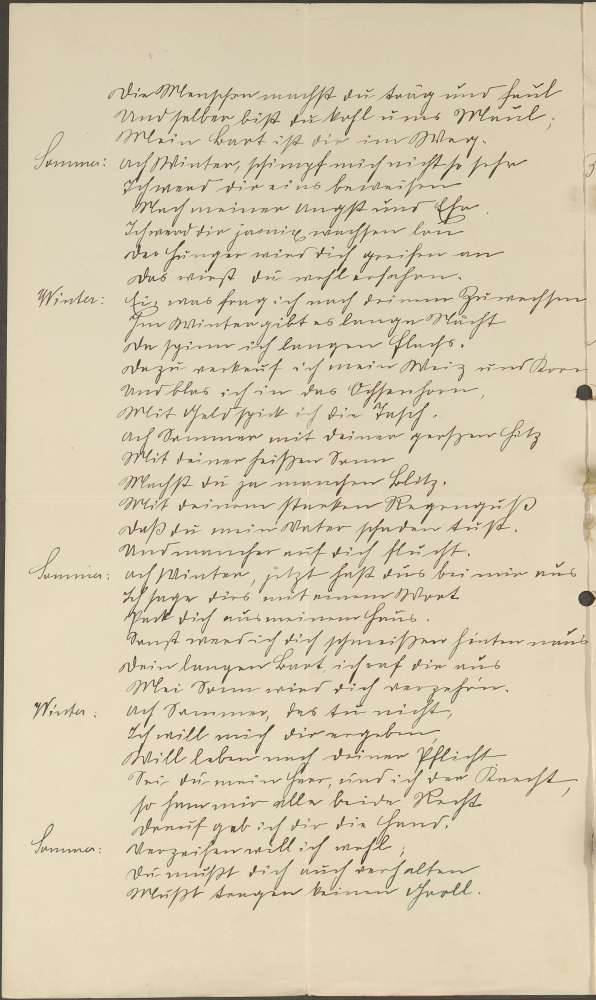 Die Menschen machst du träg und faul
Und selber bist du kahl ums Maul,
Mein Bart ist dir im Weg.
Sommer: Ach Winter, schimpf mich nicht so sehr
Ich werd dir eins beweisen
Nach meiner Angst und Ehr
Ich werd dir wachsen lan
Der Hunger wird dich greifen an
Das wirst du wohl erfahren.
Winter: Ei, was frag ich nach deinem Zuwachsen
Im Winter gibt es lange Nächt
Da spinn ich langen Flachs.
Dazu verkauf ich mein Weiz und Korn
Und blas ich in das Ochsenhorn,
Mit Geld spick ich die Tasch.
Ach Sommer mit deiner grossen Hitz
Mit deiner heißen Sonn
Machst du ja manchen Blitz.
Mit deinem starken Regenguß
Daß du mein Vater schaden tust.
Und mancher auf dich flucht.
Sommer: Ach Winter, jetzt hast dus bei mir aus
Ich sage dirs mit einem Wort
Pack dich aus meinem Haus.
Sonst werd ich dich schmeißen hinten naus
Dein langen Bart, ich raf dir aus
Mei Sonn wird dich verzehrn.
Winter: Ach Sommer, das tu nicht,
Ich will mich dir ergeben
Will leben nach deiner Pflicht
Sei du mein Herr, und ich der Knecht,
so ham mir alle beide Recht
Drauf geb ich dir die Hand.
Sommer: Verzeihen will ich wohl,
Du mußt dich auch verhalten
Mußt tragen keinen Groll.